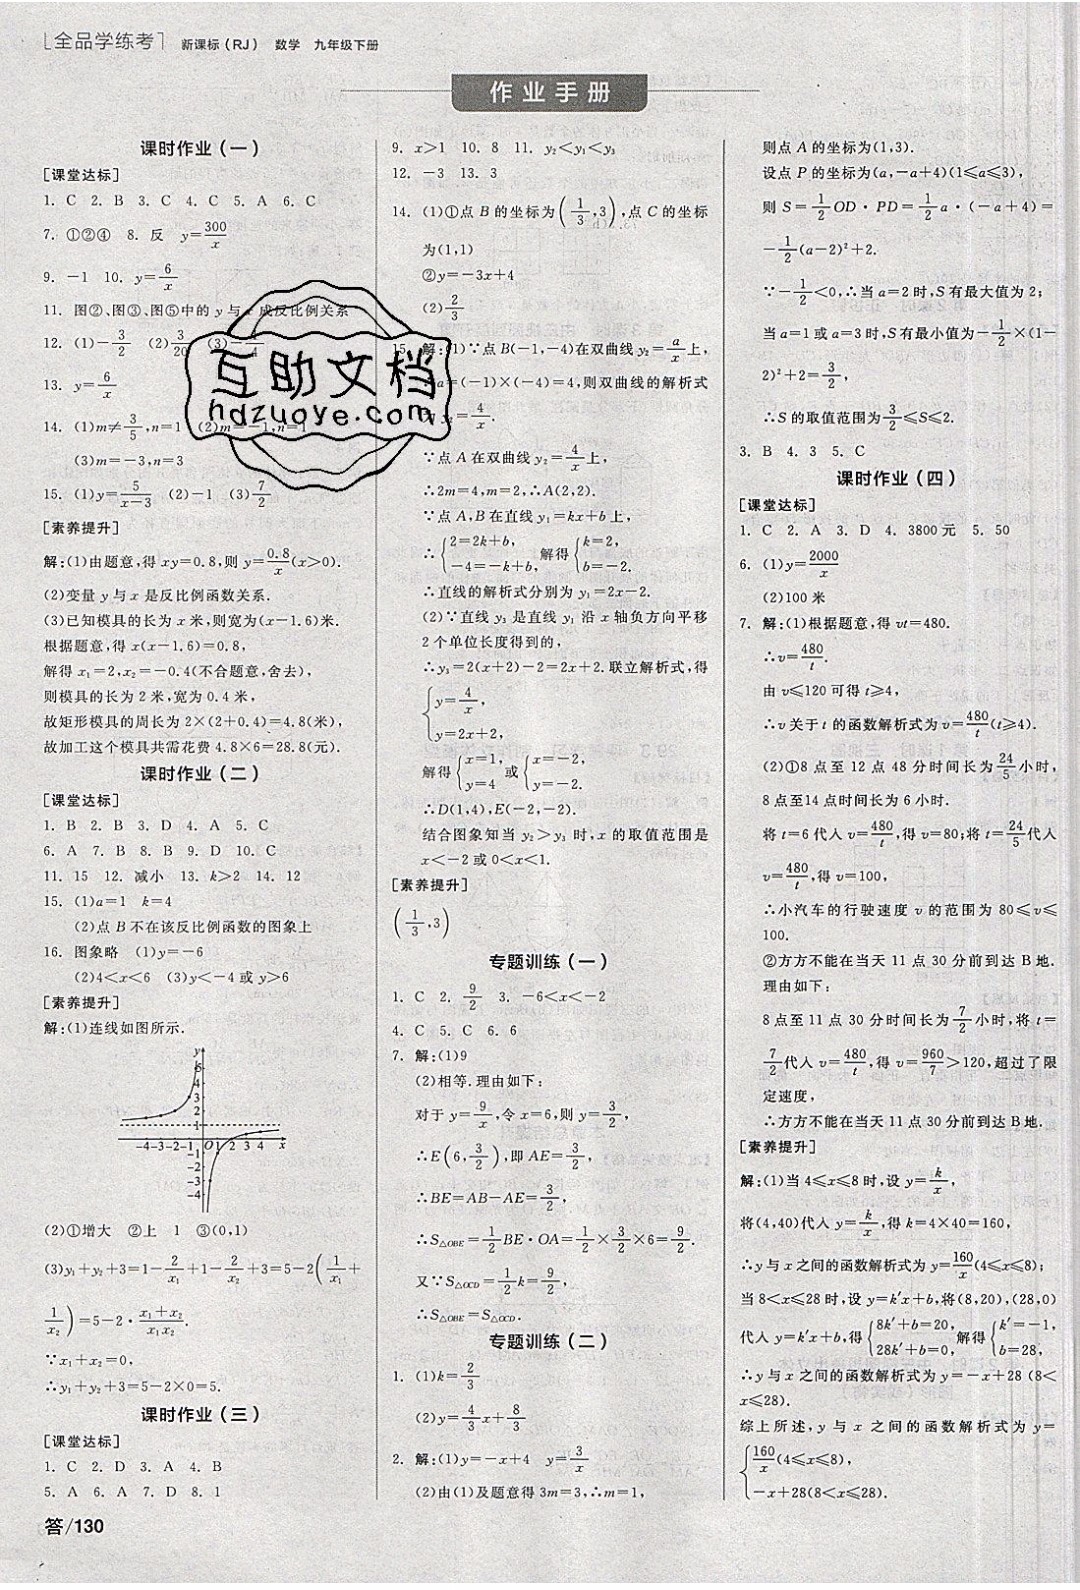 [全品学练考] 新课标(RJ) 数学 九年级下册
作业手册
课时作业(一)
[课堂达标]
1. C 2. B 3. C 4. C 5. A 6. C
7. ①②④ 8. 反 y=300/x
9. -1 10. y=6/x
11. 图②、图③、图⑤中的 y 与 x 成反比例关系
12. (1)-3/2 (2)3/20 (3)
13. y=6/x
14. (1)m≠3/5,n=1 (2)m=-1,n=1
(3)m=-3,n=3
15. (1)y=5/(x-3) (2)-1 (3)7/2
[素养提升]
解:(1)由题意,得 xy=0.8,则 y=0.8/x(x>0).
(2)变量 y 与 x 是反比例函数关系.
(3)已知模具的长为 x 米,则宽为(x-1.6)米.
根据题意,得 x(x-1.6)=0.8,
解得 x₁=2,x₂=-0.4(不合题意,舍去),
则模具的长为 2 米,宽为 0.4 米,
故矩形模具的周长为 2×(2+0.4)=4.8(米),
故加工这个模具共需花费 4.8×6=28.8(元).
课时作业(二)
[课堂达标]
1. B 2. B 3. D 4. A 5. C
6. A 7. B 8. B 9. D 10. C
11. 15 12. 减小 13. k>2 14. 12
15. (1)a=1 k=4
(2)点 B 不在该反比例函数的图象上
16. 图象略 (1)y=-6
(2)4<x<6 (3)y<-4 或 y>6
[素养提升]
解:(1)连线如图所示.
y
5
4
3
2
1
-4-3-2-1 O 1 2 3 4 x
-1
-2
-3
-4
(2)①增大 ②上 1 ③(0,1)
(3)y₁+y₂+3=1-2/x₁+1-2/x₂+3=5-2(1/x₁+
1/x₂)=5-2·(x₁+x₂)/(x₁x₂).
∵x₁+x₂=0,
∴y₁+y₂+3=5-2×0=5.
课时作业(三)
[课堂达标]
1. C 2. D 3. A 4. B
5. A 6. A 7. D 8. 1
9. x>1 10. 8 11. y₂<y₁<y₃
12. -3 13. 3
14. (1)①点 B 的坐标为(1/3,3),点 C 的坐标
为(1,1)
②y=-3x+4
(2)2/3
15. 解:(1)∵点 B(-1,-4)在双曲线 y₂=a/x上,
a=(-1)×(-4)=4,则双曲线的解析式
y₂=4/x.
∵点 A 在双曲线 y₂=4/x上,
∴2m=4,m=2,∴A(2,2).
∵点 A,B 在直线 y₁=kx+b 上,
∴{2=2k+b, -4=-k+b, 解得{k=2, b=-2.
∴直线的解析式分别为 y₁=2x-2.
(2)∵直线 y₃ 是直线 y₁ 沿 x 轴负方向平移
2 个单位长度得到的,
∴y₃=2(x+2)-2=2x+2. 联立解析式,得
{y=4/x,
y=2x+2,
解得{x=1, y=4 或{x=-2, y=-2.
∴D(1,4),E(-2,-2).
结合图象知当 y₂>y₃ 时,x 的取值范围是
x<-2 或 0<x<1.
[素养提升]
(1/3,3)
专题训练(一)
1. C 2. 9/2 3. -6<x<-2
4. C 5. C 6. 6
7. 解:(1)9
(2)相等. 理由如下:
对于 y=9/x,令 x=6,则 y=3/2,
∴E(6,3/2),即 AE=3/2,
∴BE=AB-AE=3/2,
∴S△OBE=1/2BE·OA=1/2×3/2×6=9/2.
又∵S△OCD=1/2k=9/2,
∴S△OBE=S△OCD.
专题训练(二)
1. (1)k=2/3
(2)y=4/3x+8/3
2. 解:(1)y=-x+4 y=3/x
(2)由(1)及题意得 3m=3,∴m=1,
则点 A 的坐标为(1,3).
设点 P 的坐标为(a,-a+4)(1≤a≤3),
则 S=1/2OD·PD=1/2a·(-a+4)=
-1/2(a-2)²+2.
∵-1/2<0,∴当 a=2 时,S 有最大值为 2;
当 a=1 或 a=3 时,S 有最小值为-1/2×(1-
2)²+2=3/2,
∴S 的取值范围为3/2≤S≤2.
3. B 4. 3 5. C
课时作业(四)
[课堂达标]
1. C 2. A 3. D 4. 3800元 5. 50
6. (1)y=2000/x
(2)100 米
7. 解:(1)根据题意,得 vt=480.
∴v=480/t.
由 v≤120 可得 t≥4,
∴v 关于 t 的函数解析式为 v=480/t(t≥4).
(2)①8 点至 12 点 48 分时间长为24/5小时,
8 点至14 点时间长为 6 小时.
将 t=6 代入 v=480/t,得 v=80;将 t=24/5代入
v=480/t,得 v=100,
∴小汽车的行驶速度 v 的范围为 80≤v≤
100.
②方方不能在当天 11 点 30 分前到达 B 地.
理由如下:
8 点至 11 点 30 分时间长为7/2小时,将 t=
7/2代入 v=480/t,得 v=960/7>120,超过了限
定速度,
∴方方不能在当天 11 点 30 分前到达 B 地.
[素养提升]
解:(1)当 4≤x≤8 时,设 y=k/x,
将(4,40)代入 y=k/x,得 k=4×40=160,
∴y 与 x 之间的函数解析式为 y=160/x(4≤x≤8);
当 8<x≤28 时,设 y=k′x+b,将(8,20),(28,0)
代入 y=k′x+b,得{8k′+b=20, 28k′+b=0, 解得{k′=-1, b=28,
∴y 与 x 之间的函数解析式为 y=-x+28 (8<
x≤28).
综上所述,y 与 x 之间的函数解析式为 y=
{160/x(4≤x≤8),
-x+28(8<x≤28).
答/130
互助文档
hdzuoye.com